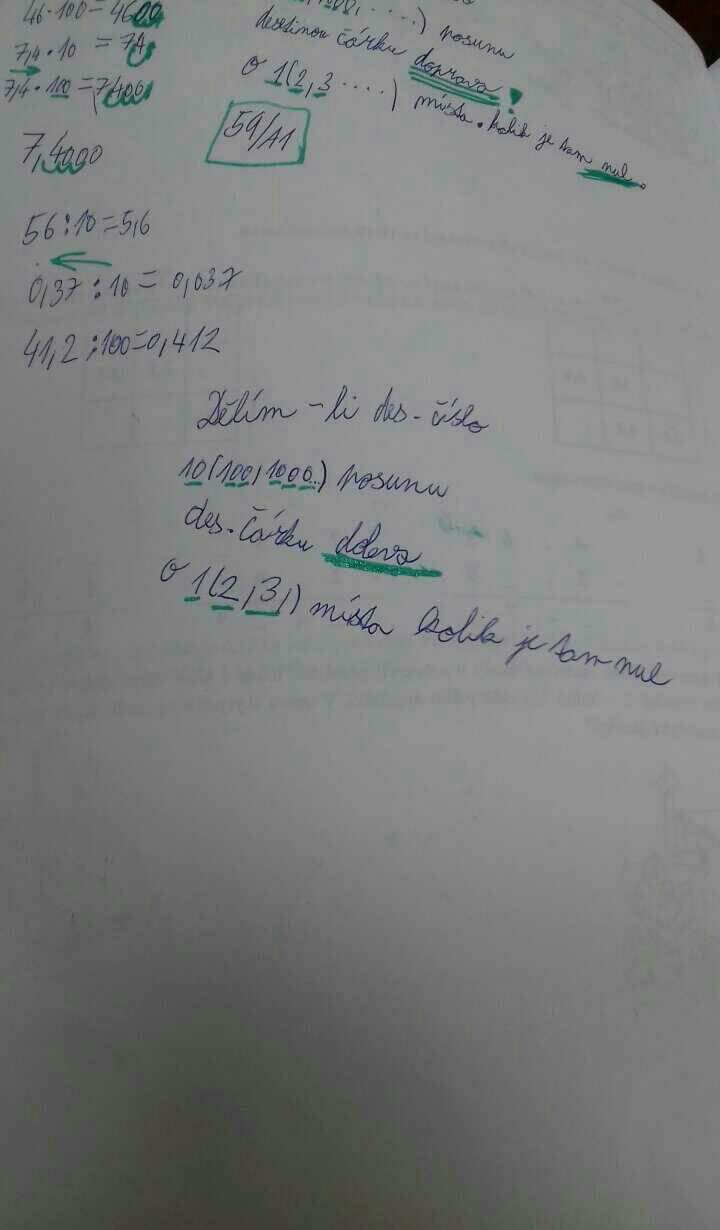 46·100=4600
7,4·10 =74
7,4·100=740
7,4000
100, .....) posunu
desetinou čárku doprava!
o 1(2,3 ....) místa. kolik je tam nul.
59/A1
56:10=5,6
0,37:10=0,037
41,2:100=0,412
Dělím-li des-číslo
10(100,1000..) posunu
des-čárku doleva
o 1(2,3,) místa kolik je tam nul